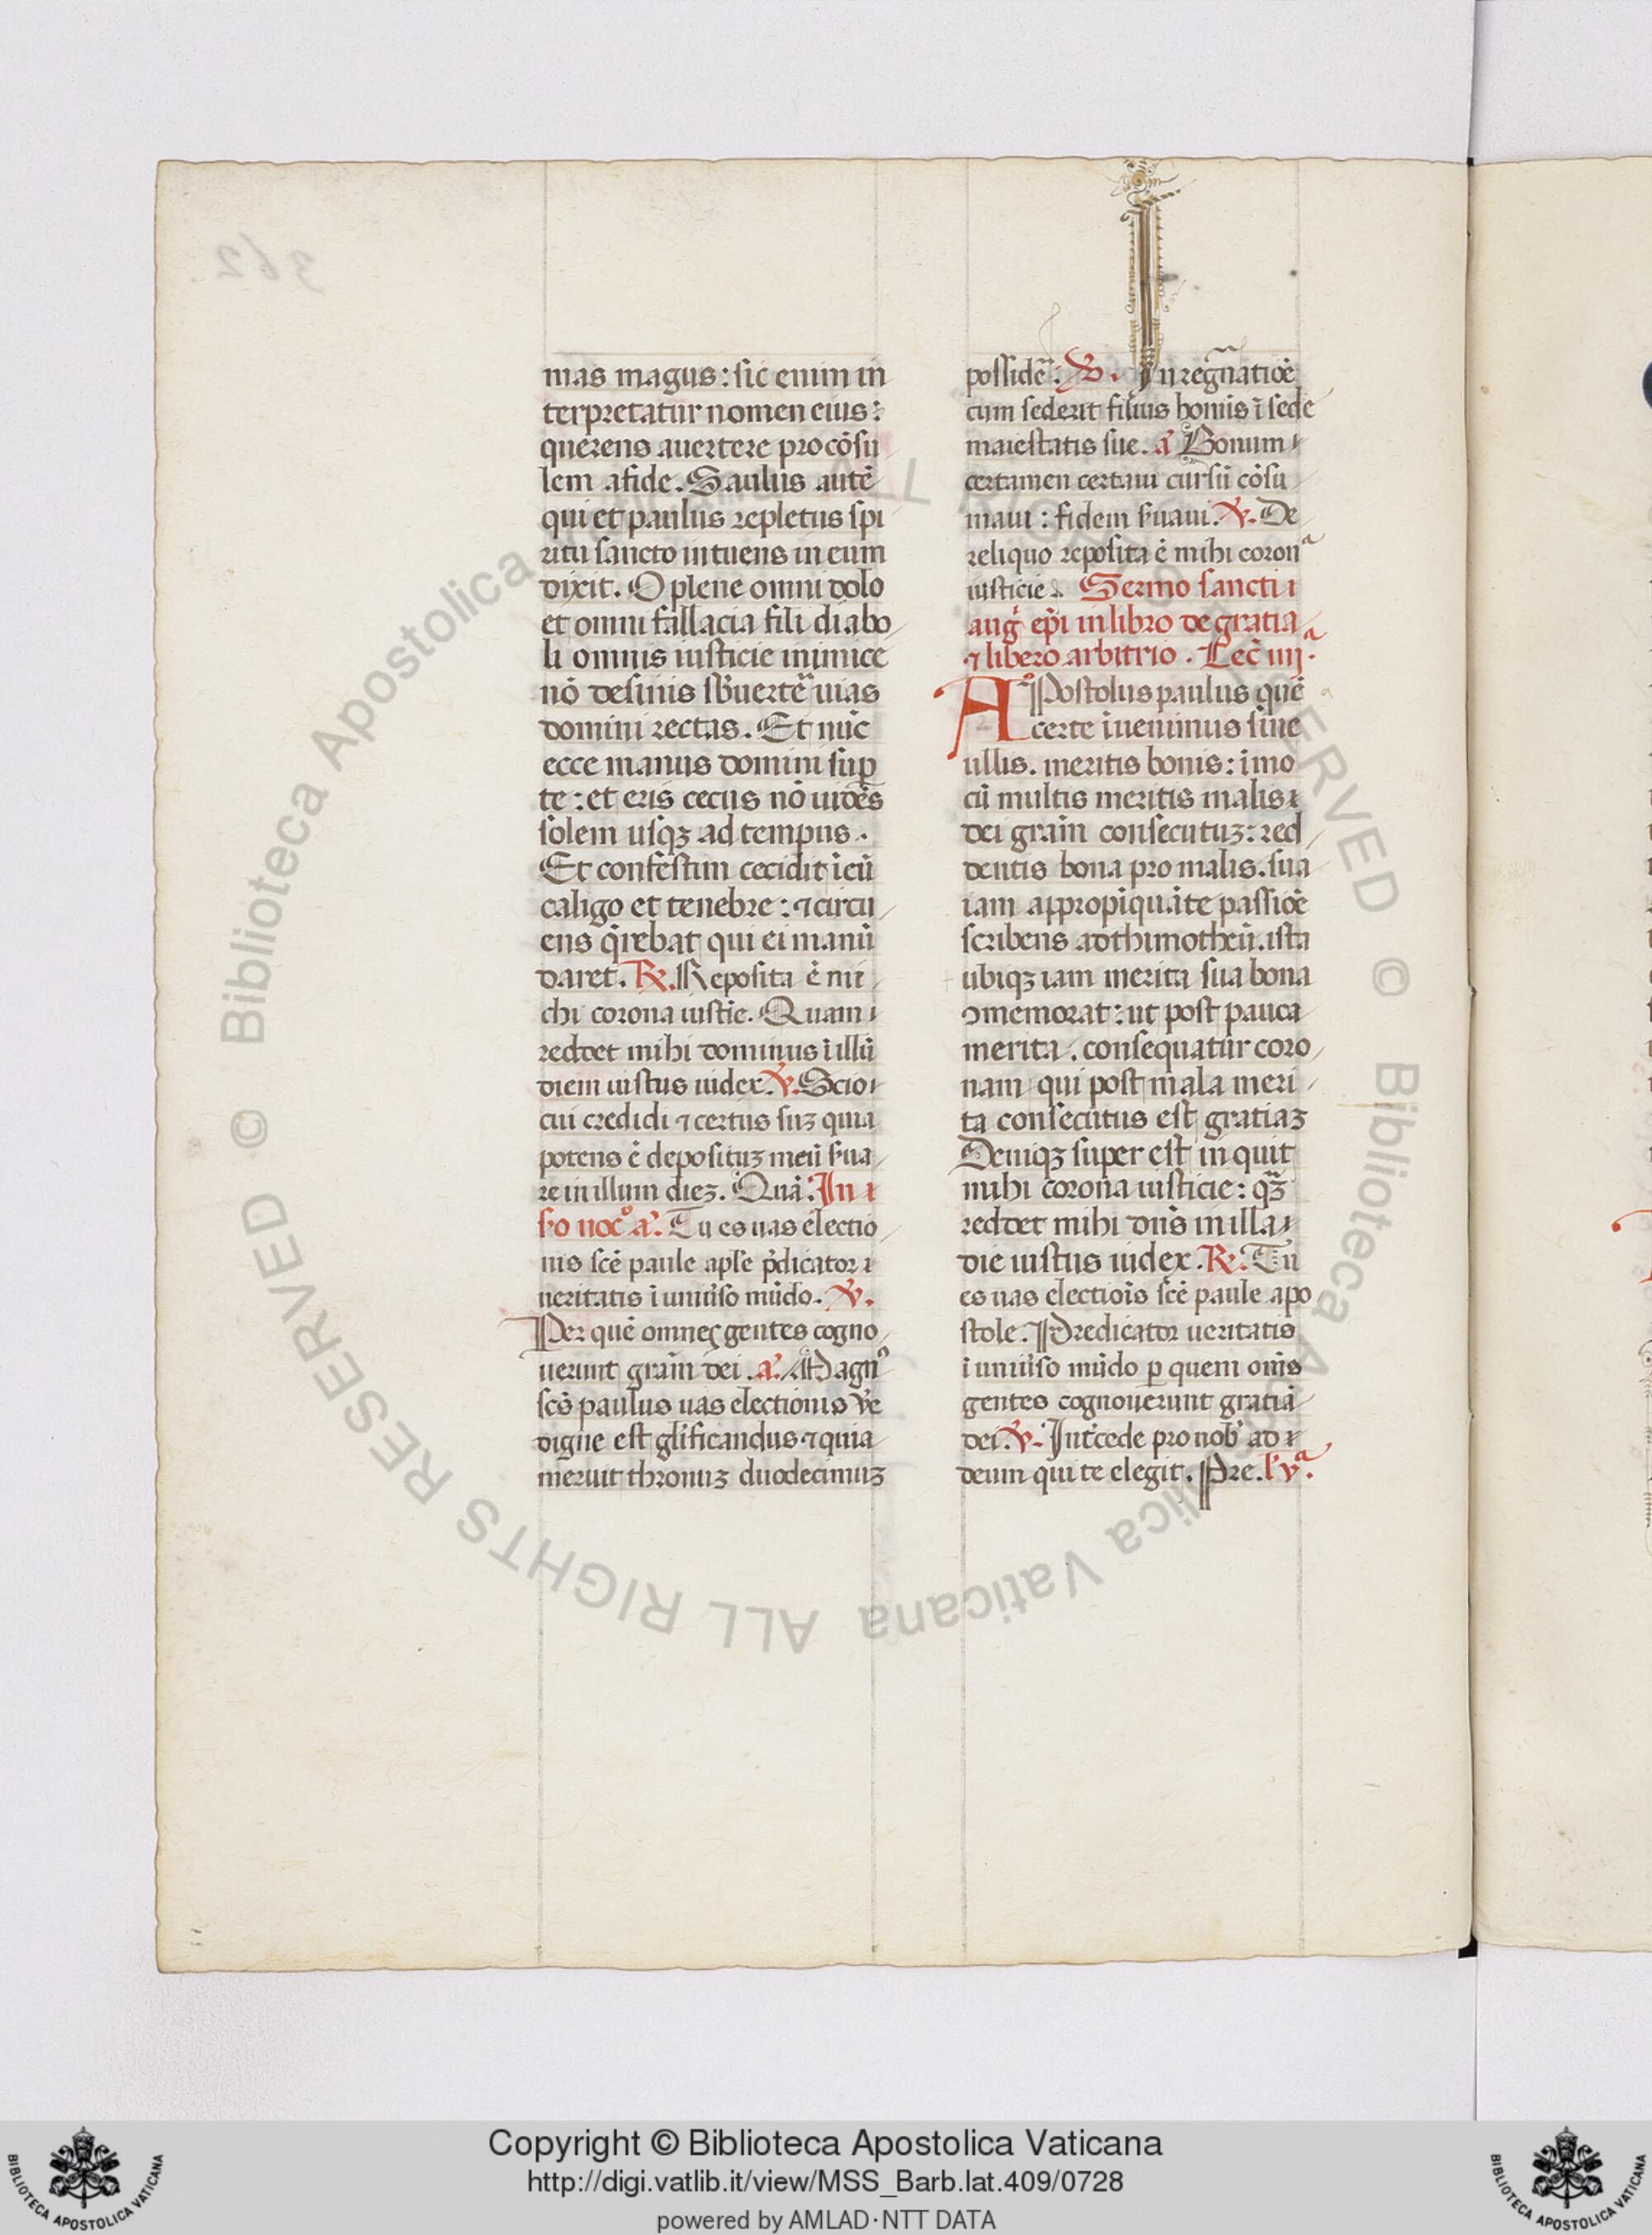 mas magus: sic enim in
terpretatur nomen eius:
querens auertere procōsu
lem a fide. Saulus autē
qui et paulus repletus spi
ritu sancto intuens in eum
dixit. O plene omni dolo
et omni fallacia fili diabo
li omnis iusticie inimice
nō desinis sb̄uertē uias
domini rectas. Et nūc
ecce manus domini suꝑ
te: et eris cecus nō uidēs
solem usqꝫ ad tempus.
Et confestim cecidit ī eū
caligo et tenebre: ⁊ circu
ens q̄rebat qui ei manū
daret. ℞. Reposita ē mi
chi corona iustic̄. Quam
reddet mihi dominus ī illū
diem iustus iudex. ℣. Scio
cui credidi ⁊ certus suꝫ quia
potens ē deposituꝫ meū s̄ua
re in illum dieꝫ. Quā. In
s̄o nocº. aͣ. Tu es uas electio
nis scē paule apl̄e p̄dicator
ueritatis ī uniūso mūdo. ℣.
Per quē omnes gentes cogno
uerunt grām dei. aͣ. Magnꝰ
scs̄ paulus uas electionis ūe
digne est gl̄ificandus ⁊ quia
meruit thronuꝫ duodecimuꝫ
possidē. ℣. In regn̄atiōe
cum sederit filius homīs ī sede
maiestatis sue. aͣ Bonum
certamen certaui cursū cōsu
maui: fidem s̄uaui. ℣. De
reliquo reposita ē mihi coronͣ
iusticie. Sermo sancti
auḡ ep̄i in libro de gratia
⁊ libero arbitrio. Lec̄ iiijͣ.
Apostolus paulus quē
certe īuenimus sine
ullis. meritis bonis: īmo
cū multis meritis malis
dei grām consecutuꝫ: red
dentis bona pro malis. sua
iam appropīquāte passiōe
scribens ad thimotheū. ista
ubiqꝫ iam merita sua bona
ꝯmemorat: ut post pauca
merita. consequatur coro
nam qui post mala meri
ta consecutus est gratiaꝫ
Deniqꝫ super est inquit
mihi corona iusticie: qͣꝫ
reddet mihi dn̄s in illa
die iustus iudex. ℞. Tu
es uas electiōis scē paule apo
stole. Predicator ueritatis
ī uniūso mūdo ꝑ quem om̄s
gentes cognouerunt gratiā
dei. ℣. Int̄cede pro nob̄ ad
deum qui te elegit. Pre. l̄ vͣ.
362
Copyright © Biblioteca Apostolica Vaticana
http://digi.vatlib.it/view/MSS_Barb.lat.409/0728
powered by AMLAD·NTT DATA
© Biblioteca Apostolica Vaticana ALL RIGHTS RESERVED
© Biblioteca Apostolica Vaticana ALL RIGHTS RESERVED
BIBLIOTECA APOSTOLICA VATICANA
BIBLIOTECA APOSTOLICA VATICANA